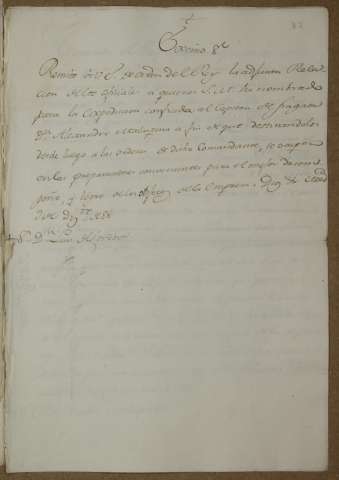 Exmo. Sr.
Remito à V. S. de orden del Rey la adjunta Rela-
cion de los oficiales à quienes S. M. ha nombrado
para la Expedicion confiada al Capitan de fragata
Dn. Alexandro Malaspina a fin de que destinandolos
desde luego a las ordenes de dicho Comandante, se ocupen
en los preparativos convenientes para el mejor desem-
peño, y logro de los objetos de la Empresa. Dios &c.
Sor. Dn. Luis